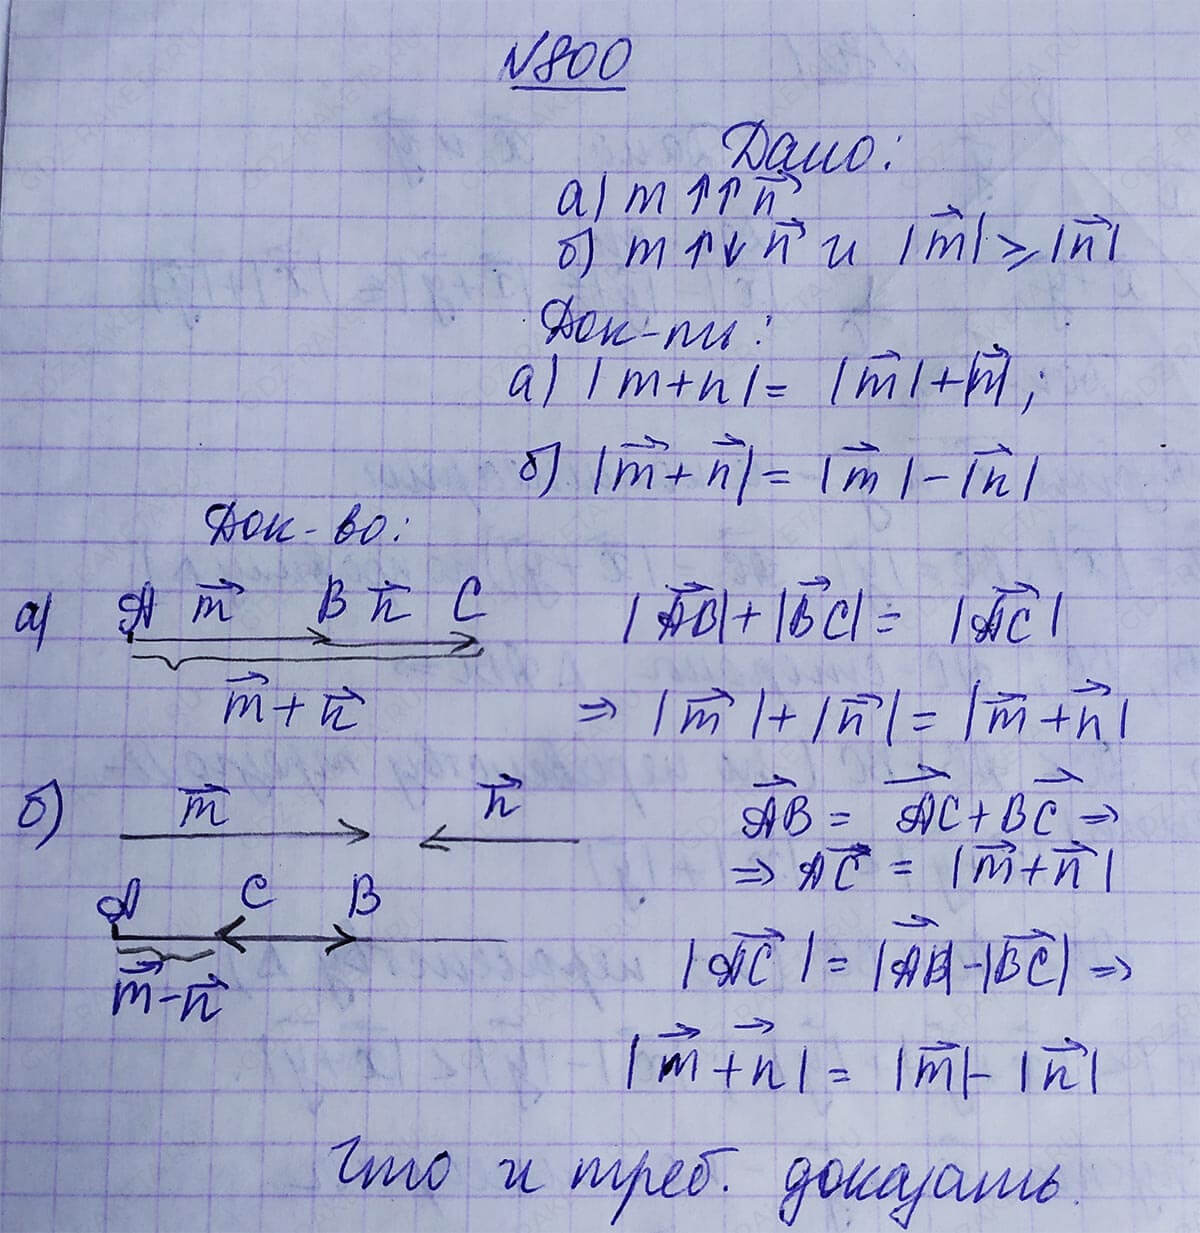 N800
Дано:
а) m ↑↑ n⃗
б) m ↑↓ n⃗ и |m⃗| ⩾ |n⃗|
Док-ть:
а) |m+n| = |m⃗|+|n⃗|;
б) |m⃗+n⃗| = |m⃗|-|n⃗|
Док-во:
а) A m⃗ B n⃗ C |AB⃗|+|BC⃗| = |AC⃗|
m⃗+n⃗ ⇒ |m⃗|+|n⃗| = |m⃗+n⃗|
б) m⃗ n⃗ AB⃗ = AC⃗+BC⃗ ⇒
⇒ AC⃗ = |m⃗+n⃗|
A C B
m⃗-n⃗ |AC⃗| = |AB⃗|-|BC⃗| ⇒
|m⃗+n⃗| = |m⃗|-|n⃗|
Что и треб. доказать.